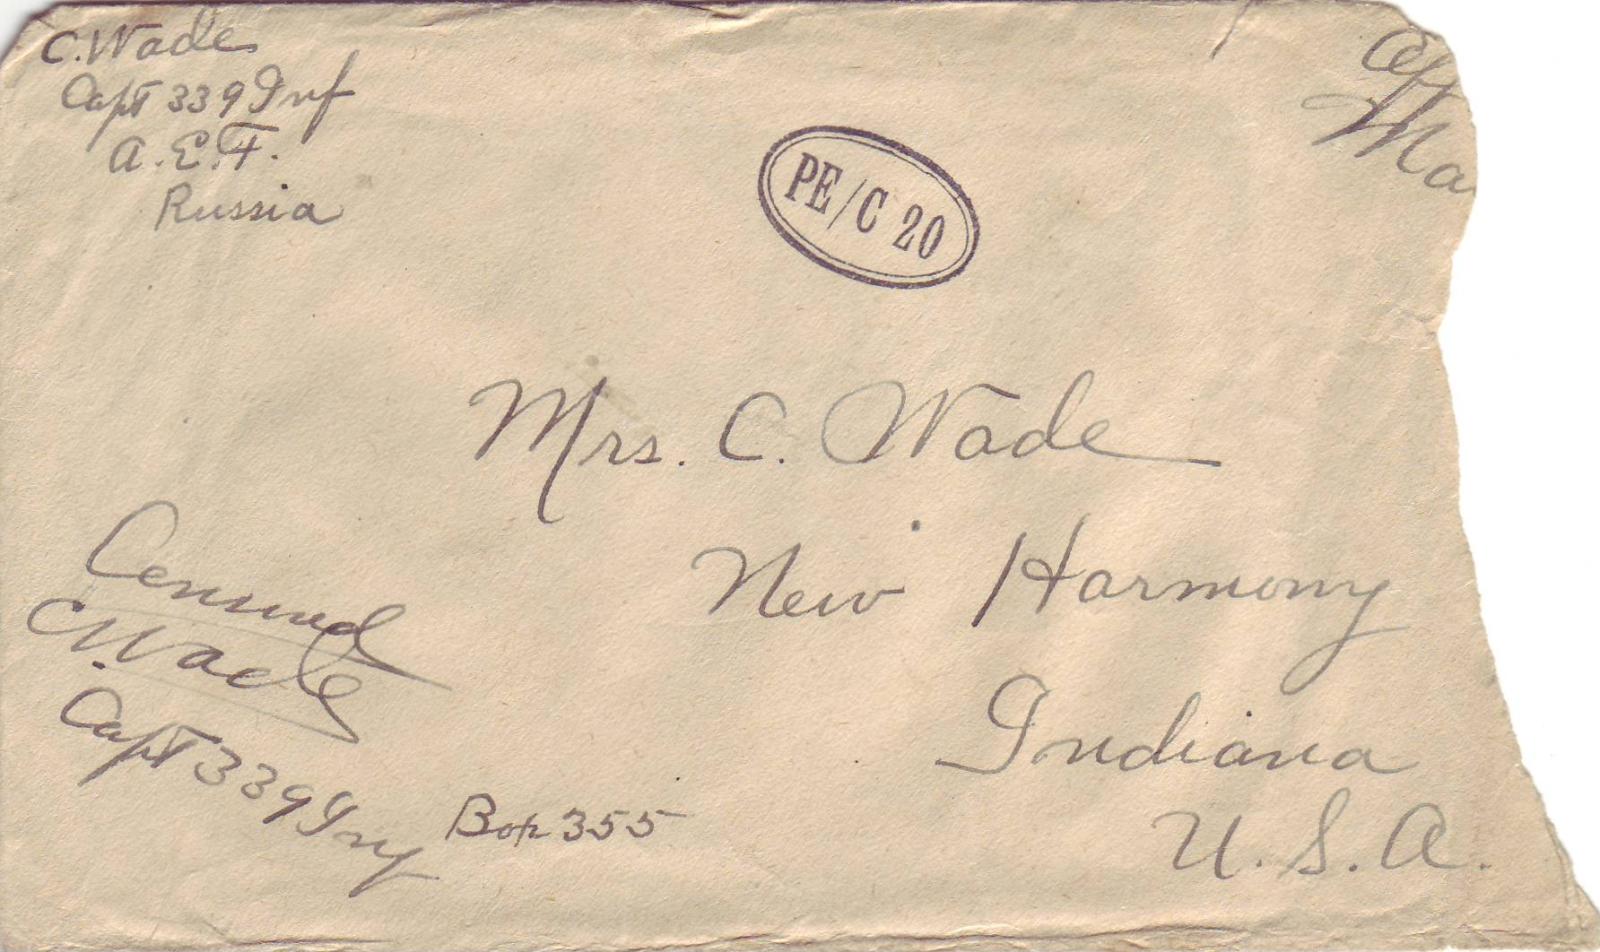 C. Wade
Capt 339 Inf
A.E.F.
Russia
Off
Ma
PE/C 20
Mrs. C. Wade
New Harmony
Indiana
U.S.A.
Censored
C. Wade
Capt 339 Inf
Box 355